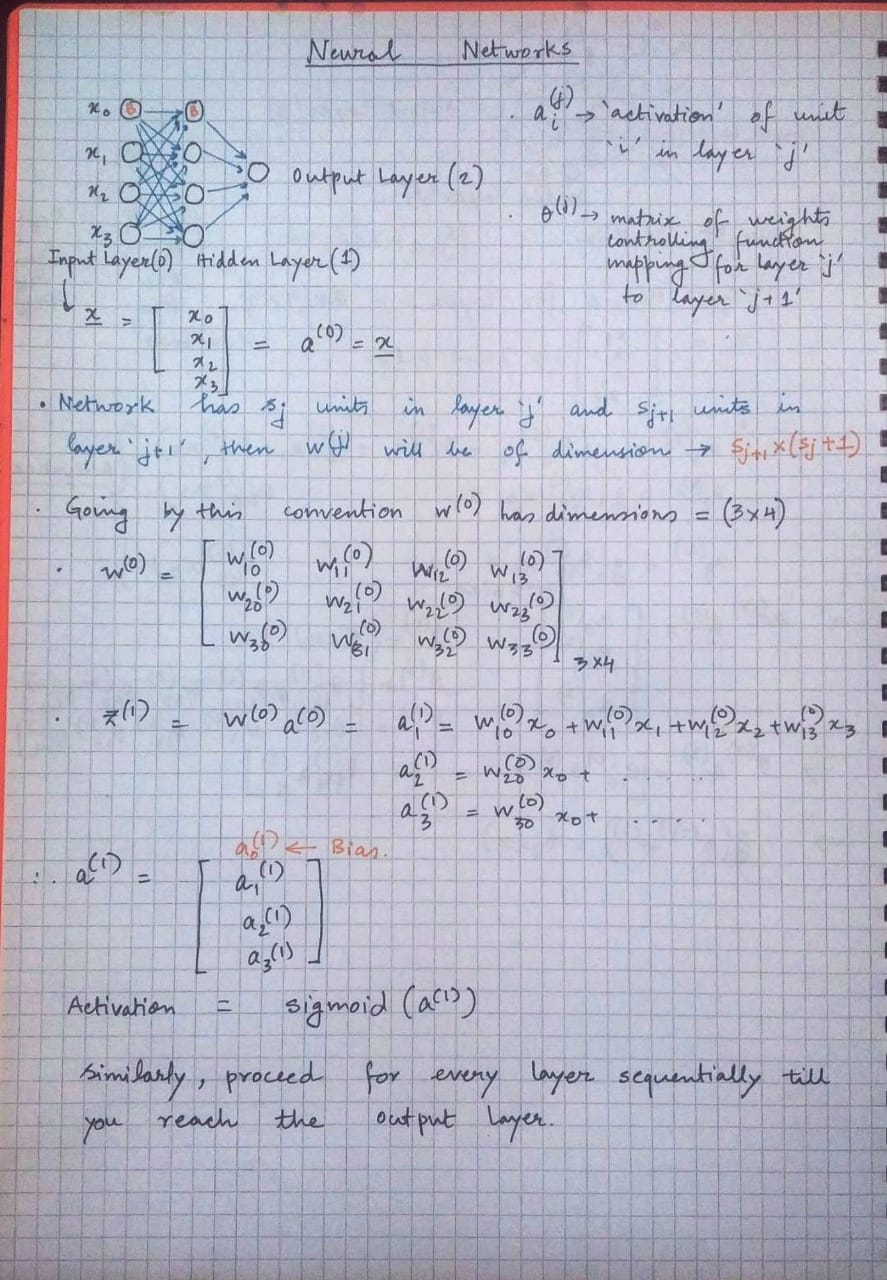 Neural Networks
x₀ B B
x₁
x₂
x₃
Output Layer (2)
Input Layer(0) Hidden Layer(1)
. aᵢ⁽ʲ⁾ → 'activation' of unit
'i' in layer 'j'
. θ⁽ʲ⁾ → matrix of weights
controlling function
mapping for layer 'j'
to layer 'j+1'
x = [ x₀
x₁
x₂
x₃ ] = a⁽⁰⁾ = x
• Network has sⱼ units in layer 'j' and sⱼ₊₁ units in
layer 'j+1', then w⁽ʲ⁾ will be of dimension → sⱼ₊₁ × (sⱼ + 1)
. Going by this convention w⁽⁰⁾ has dimensions = (3×4)
. w⁽⁰⁾ = [ w₁₀⁽⁰⁾ w₁₁⁽⁰⁾ w₁₂⁽⁰⁾ w₁₃⁽⁰⁾
w₂₀⁽⁰⁾ w₂₁⁽⁰⁾ w₂₂⁽⁰⁾ w₂₃⁽⁰⁾
w₃₀⁽⁰⁾ w₃₁⁽⁰⁾ w₃₂⁽⁰⁾ w₃₃⁽⁰⁾ ] 3×4
. z⁽¹⁾ = w⁽⁰⁾ a⁽⁰⁾ = a₁⁽¹⁾ = w₁₀⁽⁰⁾x₀ + w₁₁⁽⁰⁾x₁ + w₁₂⁽⁰⁾x₂ + w₁₃⁽⁰⁾x₃
a₂⁽¹⁾ = w₂₀⁽⁰⁾x₀ + . . . . .
a₃⁽¹⁾ = w₃₀⁽⁰⁾x₀ + . . . .
a₀⁽¹⁾ ← Bias.
∴ a⁽¹⁾ = [ a₁⁽¹⁾
a₂⁽¹⁾
a₃⁽¹⁾ ]
Activation = sigmoid (a⁽¹⁾)
Similarly, proceed for every layer sequentially till
you reach the output layer.